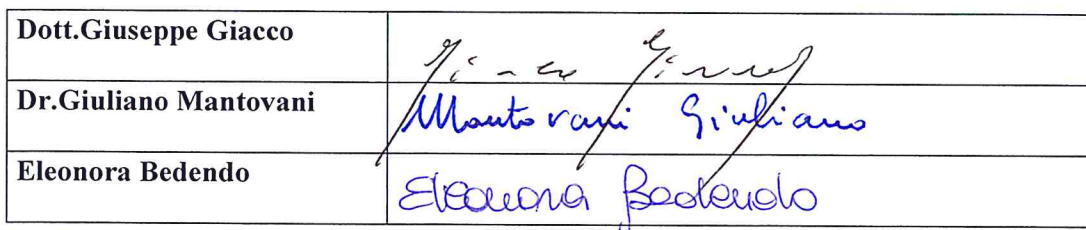 Dott.Giuseppe Giacco
Dr.Giuliano Mantovani
Mantovani Giuliano
Eleonora Bedendo
Eleonora Bedendo